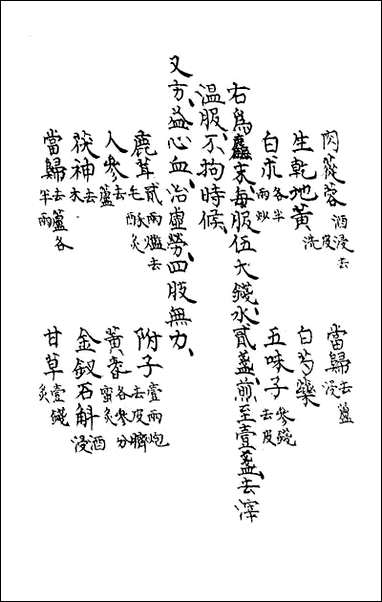 肉蓯蓉酒浸去皮 當歸去蘆浸
生乾地黃洗 白芍藥
白朮各半兩炒 五味子參錢去皮
右爲麤末每服伍大錢水貳盞煎至壹盞去滓
溫服不拘時候
又方益心血治虛勞四肢無力
鹿茸貳兩爁去毛酥炙 附子壹兩炮去皮臍
人參去蘆 黃耆各參分蜜炙
茯神去木 金釵石斛酒浸
當歸去蘆各半兩 甘草壹錢炙